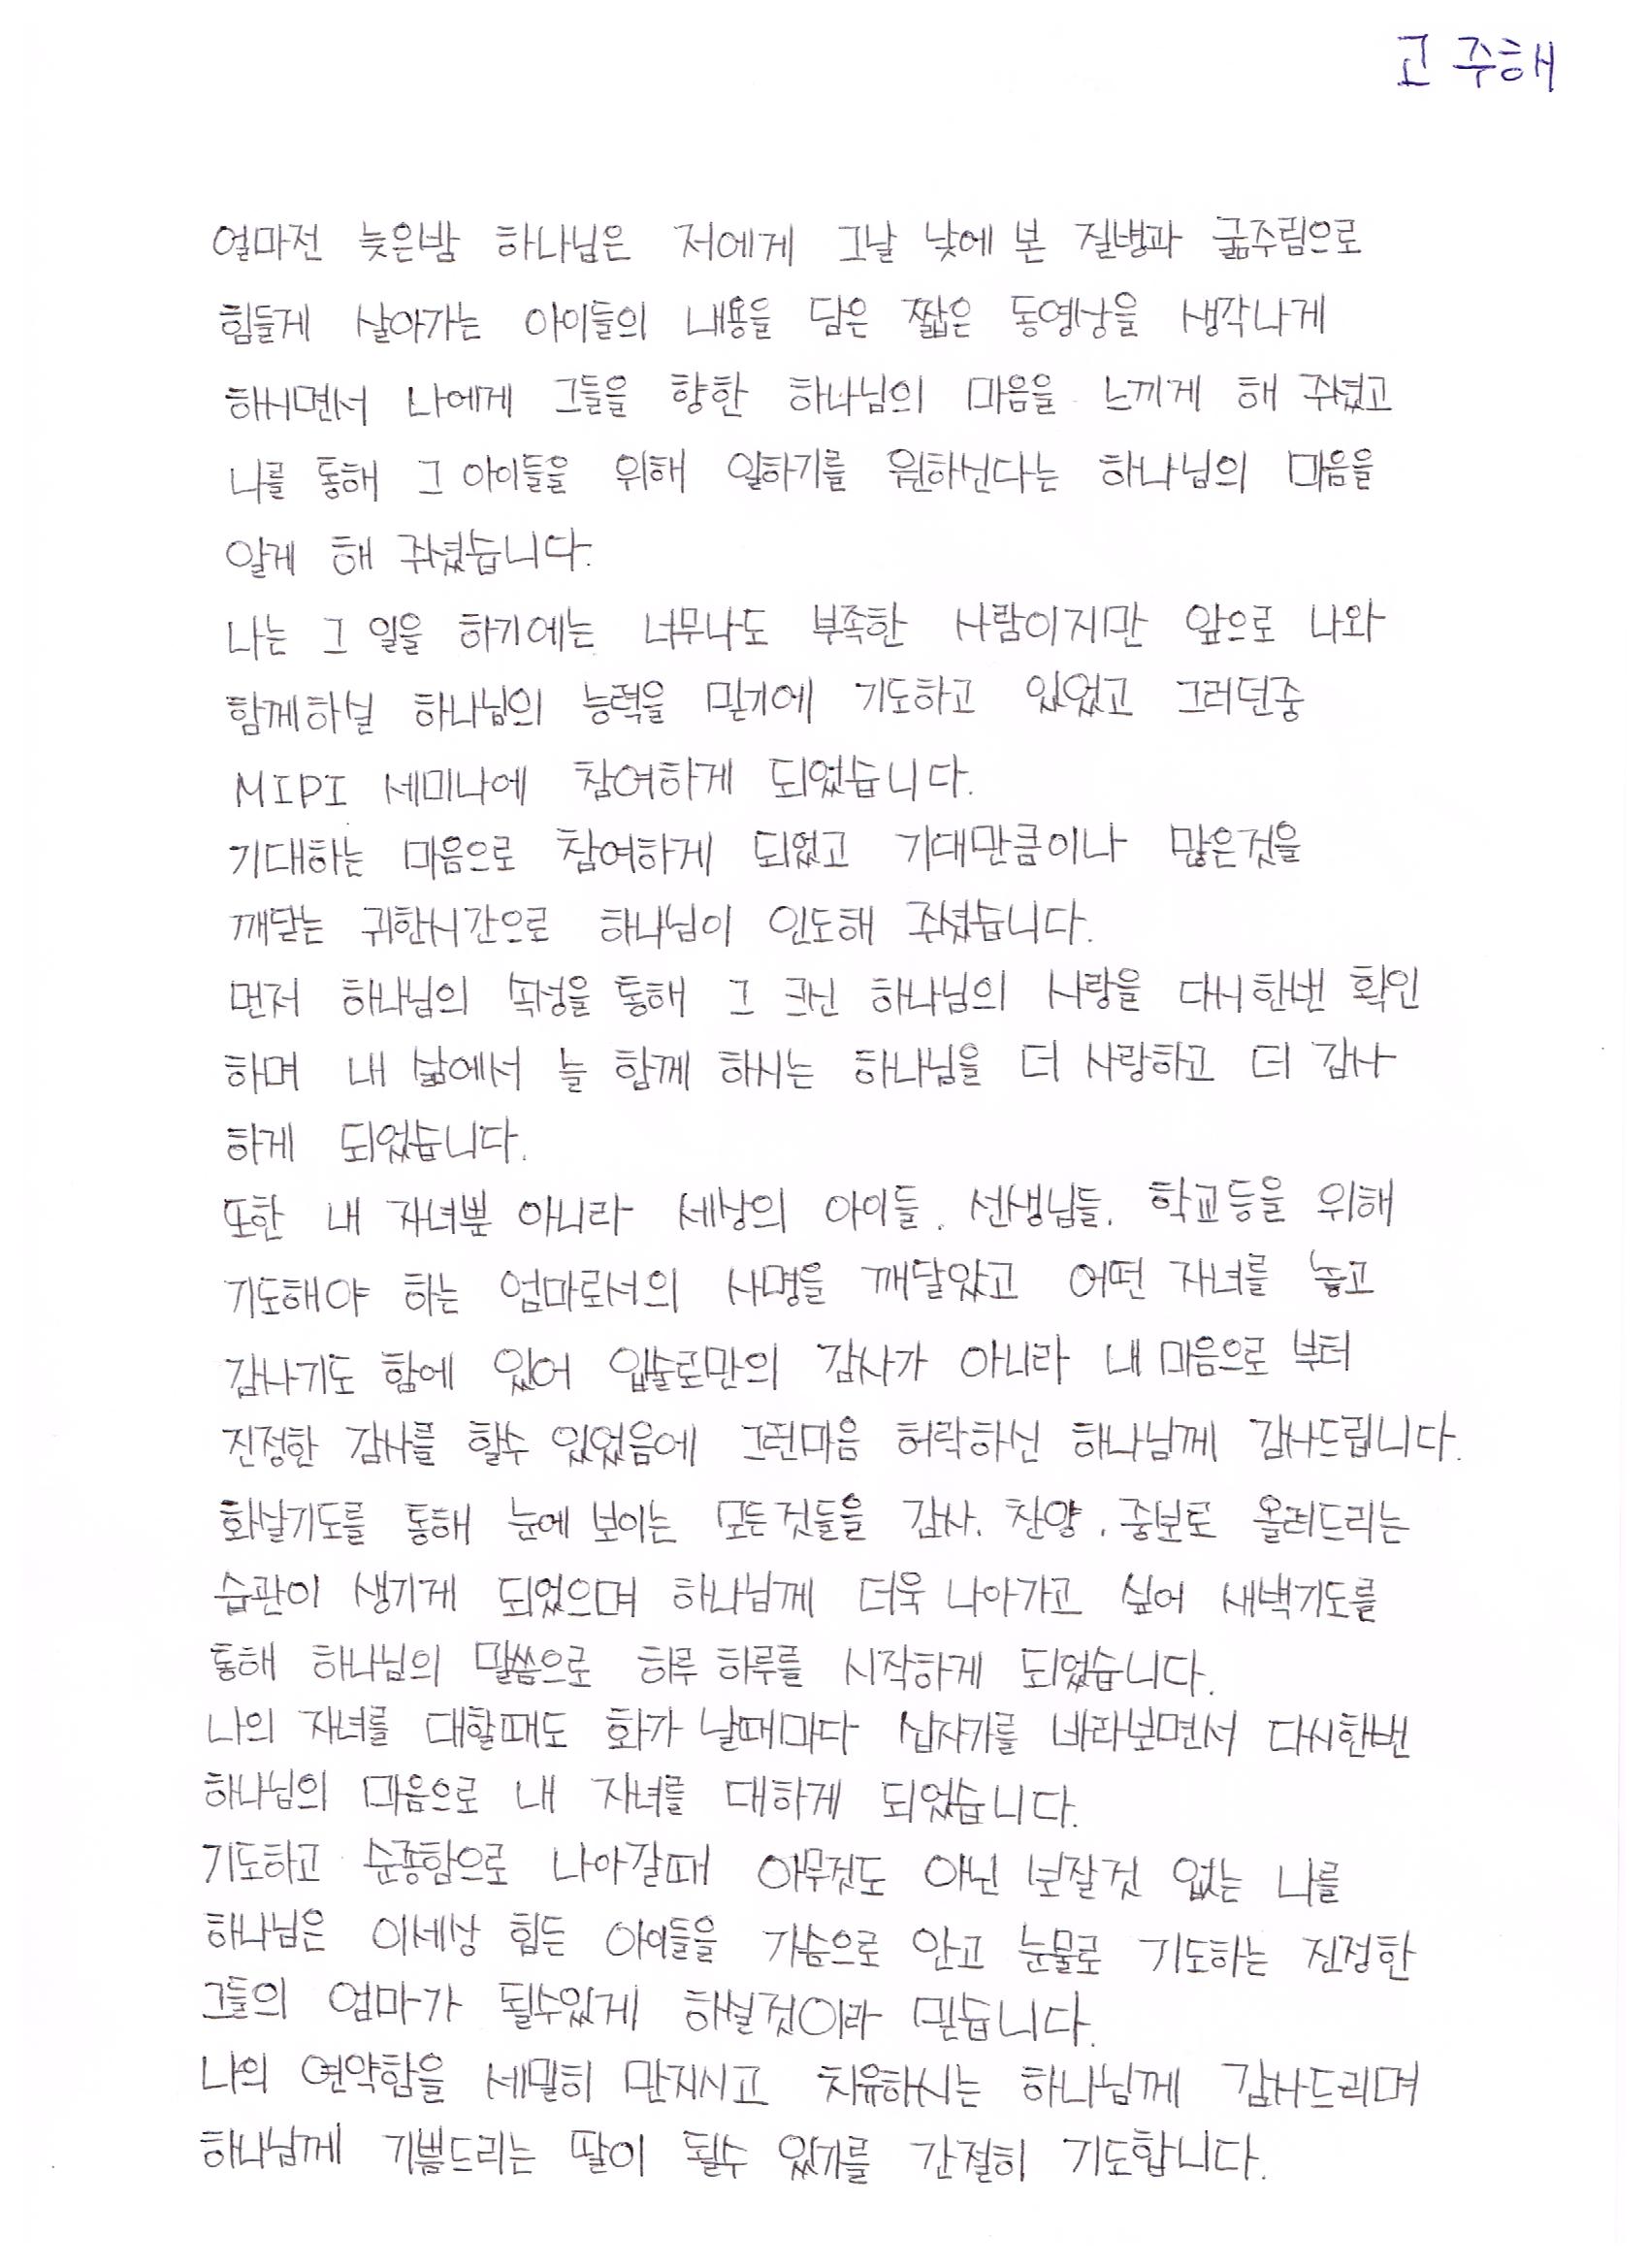 고 주해
얼마전 늦은밤 하나님은 저에게 그날 낮에 본 질병과 굶주림으로
힘들게 살아가는 아이들의 내용을 담은 짧은 동영상을 생각나게
하시면서 나에게 그들을 향한 하나님의 마음을 느끼게 해 주셨고
나를 통해 그 아이들을 위해 일하기를 원하신다는 하나님의 마음을
알게 해 주셨습니다.
나는 그 일을 하기에는 너무나도 부족한 사람이지만 앞으로 나와
함께하실 하나님의 능력을 믿기에 기도하고 있었고 그러던중
MIPI 세미나에 참여하게 되었습니다.
기대하는 마음으로 참여하게 되었고 기대만큼이나 많은것을
깨닫는 귀한시간으로 하나님이 인도해 주셨습니다.
먼저 하나님의 속성을 통해 그 크신 하나님의 사랑을 다시한번 확인
하며 내 삶에서 늘 함께 하시는 하나님을 더 사랑하고 더 감사
하게 되었습니다.
또한 내 자녀뿐 아니라 세상의 아이들, 선생님들, 학교등을 위해
기도해야 하는 엄마로서의 사명을 깨달았고 어떤 자녀를 놓고
감사기도 함에 있어 입술로만의 감사가 아니라 내 마음으로 부터
진정한 감사를 할수 있었음에 그런마음 허락하신 하나님께 감사드립니다.
화살기도를 통해 눈에 보이는 모든것들을 감사, 찬양, 중보로 올려드리는
습관이 생기게 되었으며 하나님께 더욱 나아가고 싶어 새벽기도를
통해 하나님의 말씀으로 하루 하루를 시작하게 되었습니다.
나의 자녀를 대할때도 화가 날때마다 십자가를 바라보면서 다시한번
하나님의 마음으로 내 자녀를 대하게 되었습니다.
기도하고 순종함으로 나아갈때 아무것도 아닌 보잘것 없는 나를
하나님은 이세상 힘든 아이들을 가슴으로 안고 눈물로 기도하는 진정한
그들의 엄마가 될수있게 하실것이라 믿습니다.
나의 연약함을 세밀히 만지시고 치유하시는 하나님께 감사드리며
하나님께 기쁨드리는 딸이 될수 있기를 간절히 기도합니다.